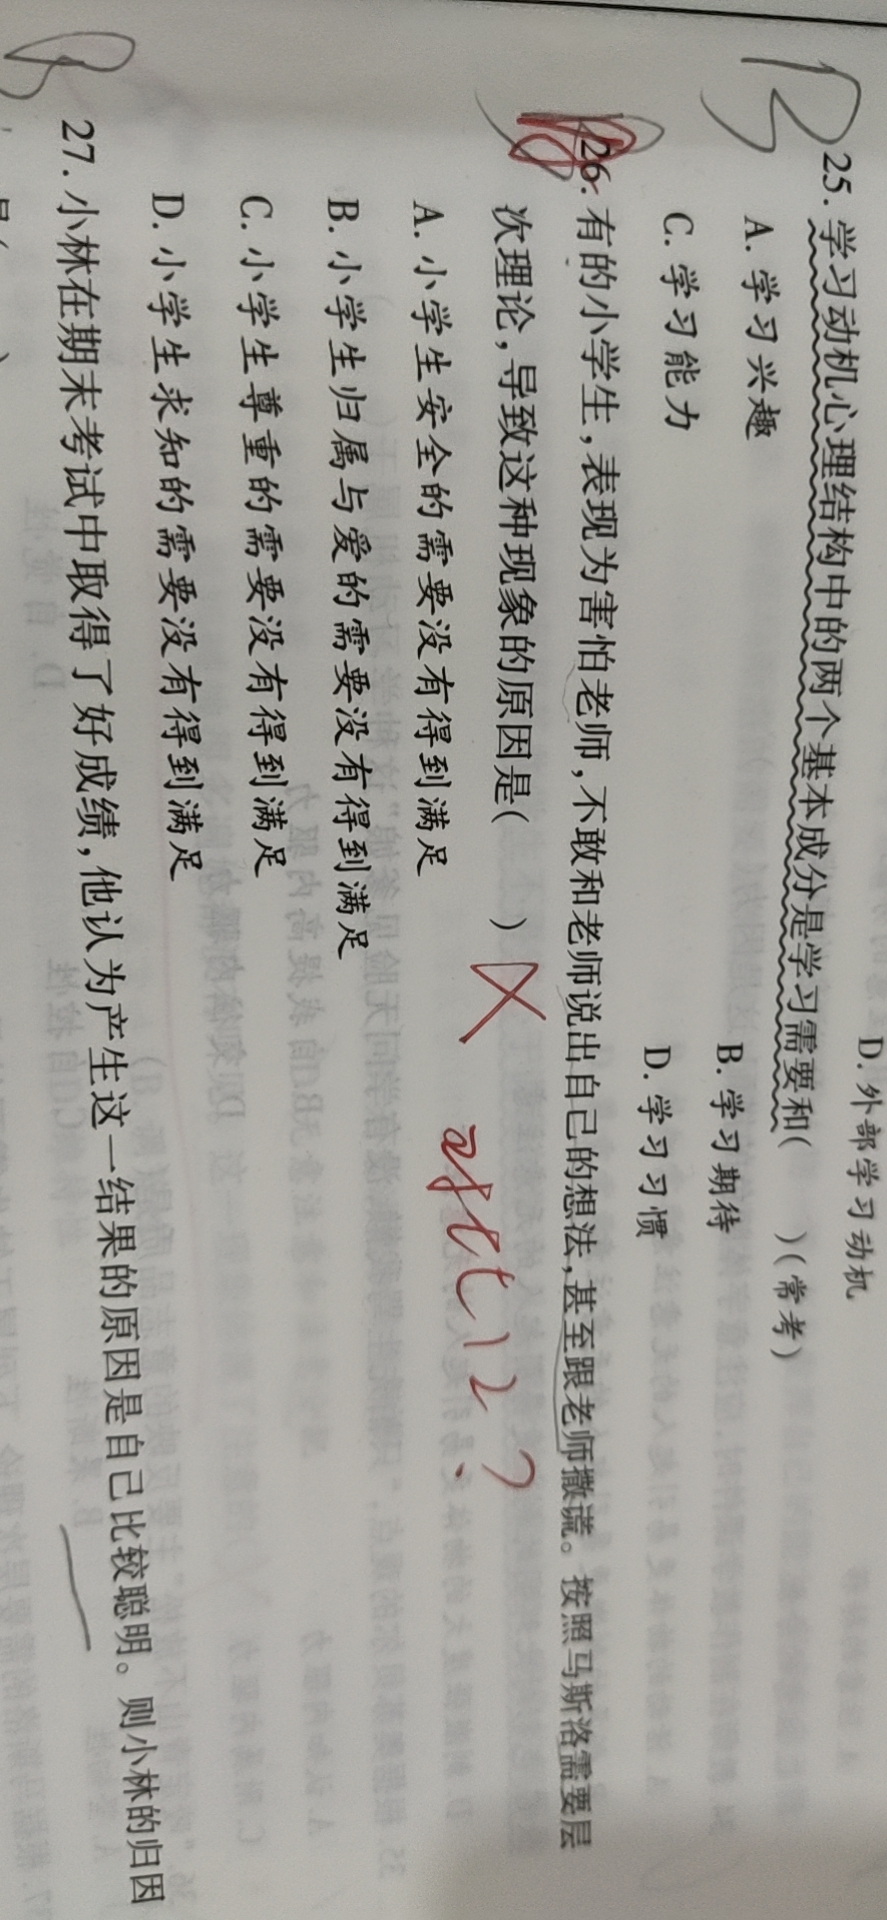 D. 外部学习动机
25. 学习动机心理结构中的两个基本成分是学习需要和(　　)(常考)
A. 学习兴趣　　B. 学习期待
C. 学习能力　　D. 学习习惯
26. 有的小学生,表现为害怕老师,不敢和老师说出自己的想法,甚至跟老师撒谎。按照马斯洛需要层
次理论,导致这种现象的原因是(　　)
A. 小学生安全的需要没有得到满足
B. 小学生归属与爱的需要没有得到满足
C. 小学生尊重的需要没有得到满足
D. 小学生求知的需要没有得到满足
27. 小林在期末考试中取得了好成绩,他认为产生这一结果的原因是自己比较聪明。则小林的归因